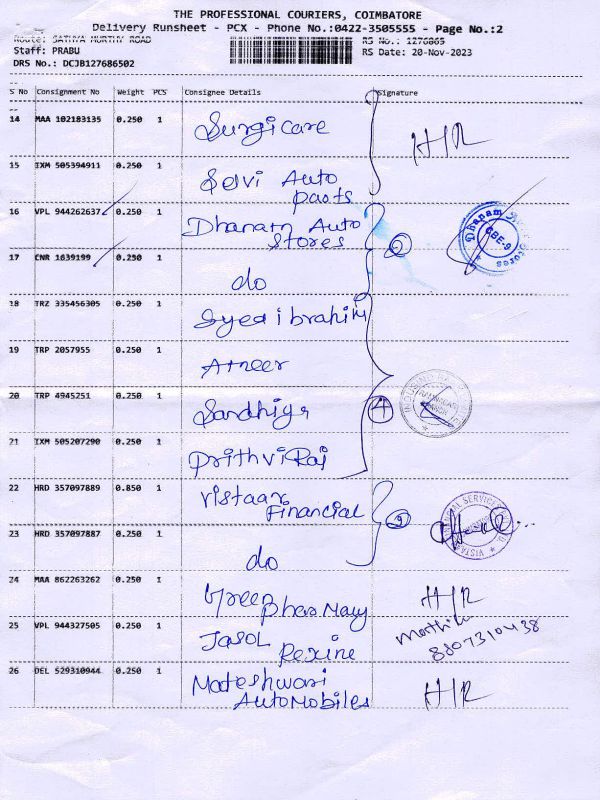 THE PROFESSIONAL COURIERS, COIMBATORE
Delivery Runsheet - PCX - Phone No.:0422-3505555 - Page No.:2
Route: SATHYA MURTHY ROAD
RS No.: 1276865
Staff: PRABU
RS Date: 20-Nov-2023
DRS No.: DCJB127686502
S No Consignment No Weight PCS Consignee Details Signature
14 MAA 102183135 0.250 1 Surgi care H/R
15 IXM 505394911 0.250 1 Selvi Auto
parts
16 VPL 944262637 0.250 1 Dhanam Auto
Stores
2
Dhanam
CBE-9
Stores
17 CNR 1639199 0.250 1 do
18 TRZ 335456305 0.250 1 Syed ibrahim
19 TRP 2057955 0.250 1 Ameer
20 TRP 4945251 0.250 1 Sandhiya
4
21 IXM 505207290 0.250 1 Prithvi Raj
22 HRD 357097889 0.850 1 Vistaar
Financial
2
23 HRD 357097887 0.250 1 do
24 MAA 862263262 0.250 1 Green
Pharmacy
H/R
25 VPL 944327505 0.250 1 Jasol
Rexine
8807310438
26 DEL 529310944 0.250 1 Mateshwari
AutoMobiles
H/R